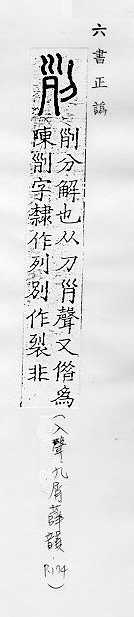 六書正譌
𠛱分解也从刀𡿪聲又借爲
陳𠛱字隸作列別作裂非
(入聲九屑薛韻 P.174)